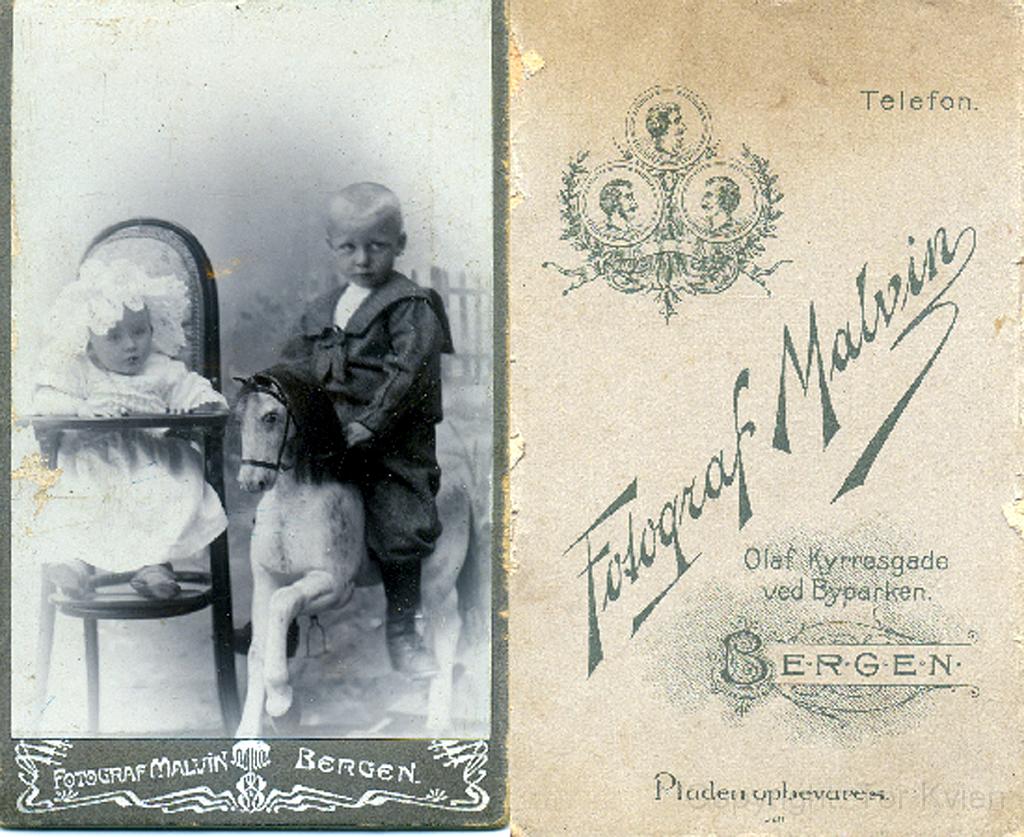 FOTOGRAF MALVIN BERGEN.
Telefon.
Fotograf Malvin
Olaf Kyrresgade
ved Byparken.
B·E·R·G·E·N·
Pladen opbevares.
Kvien